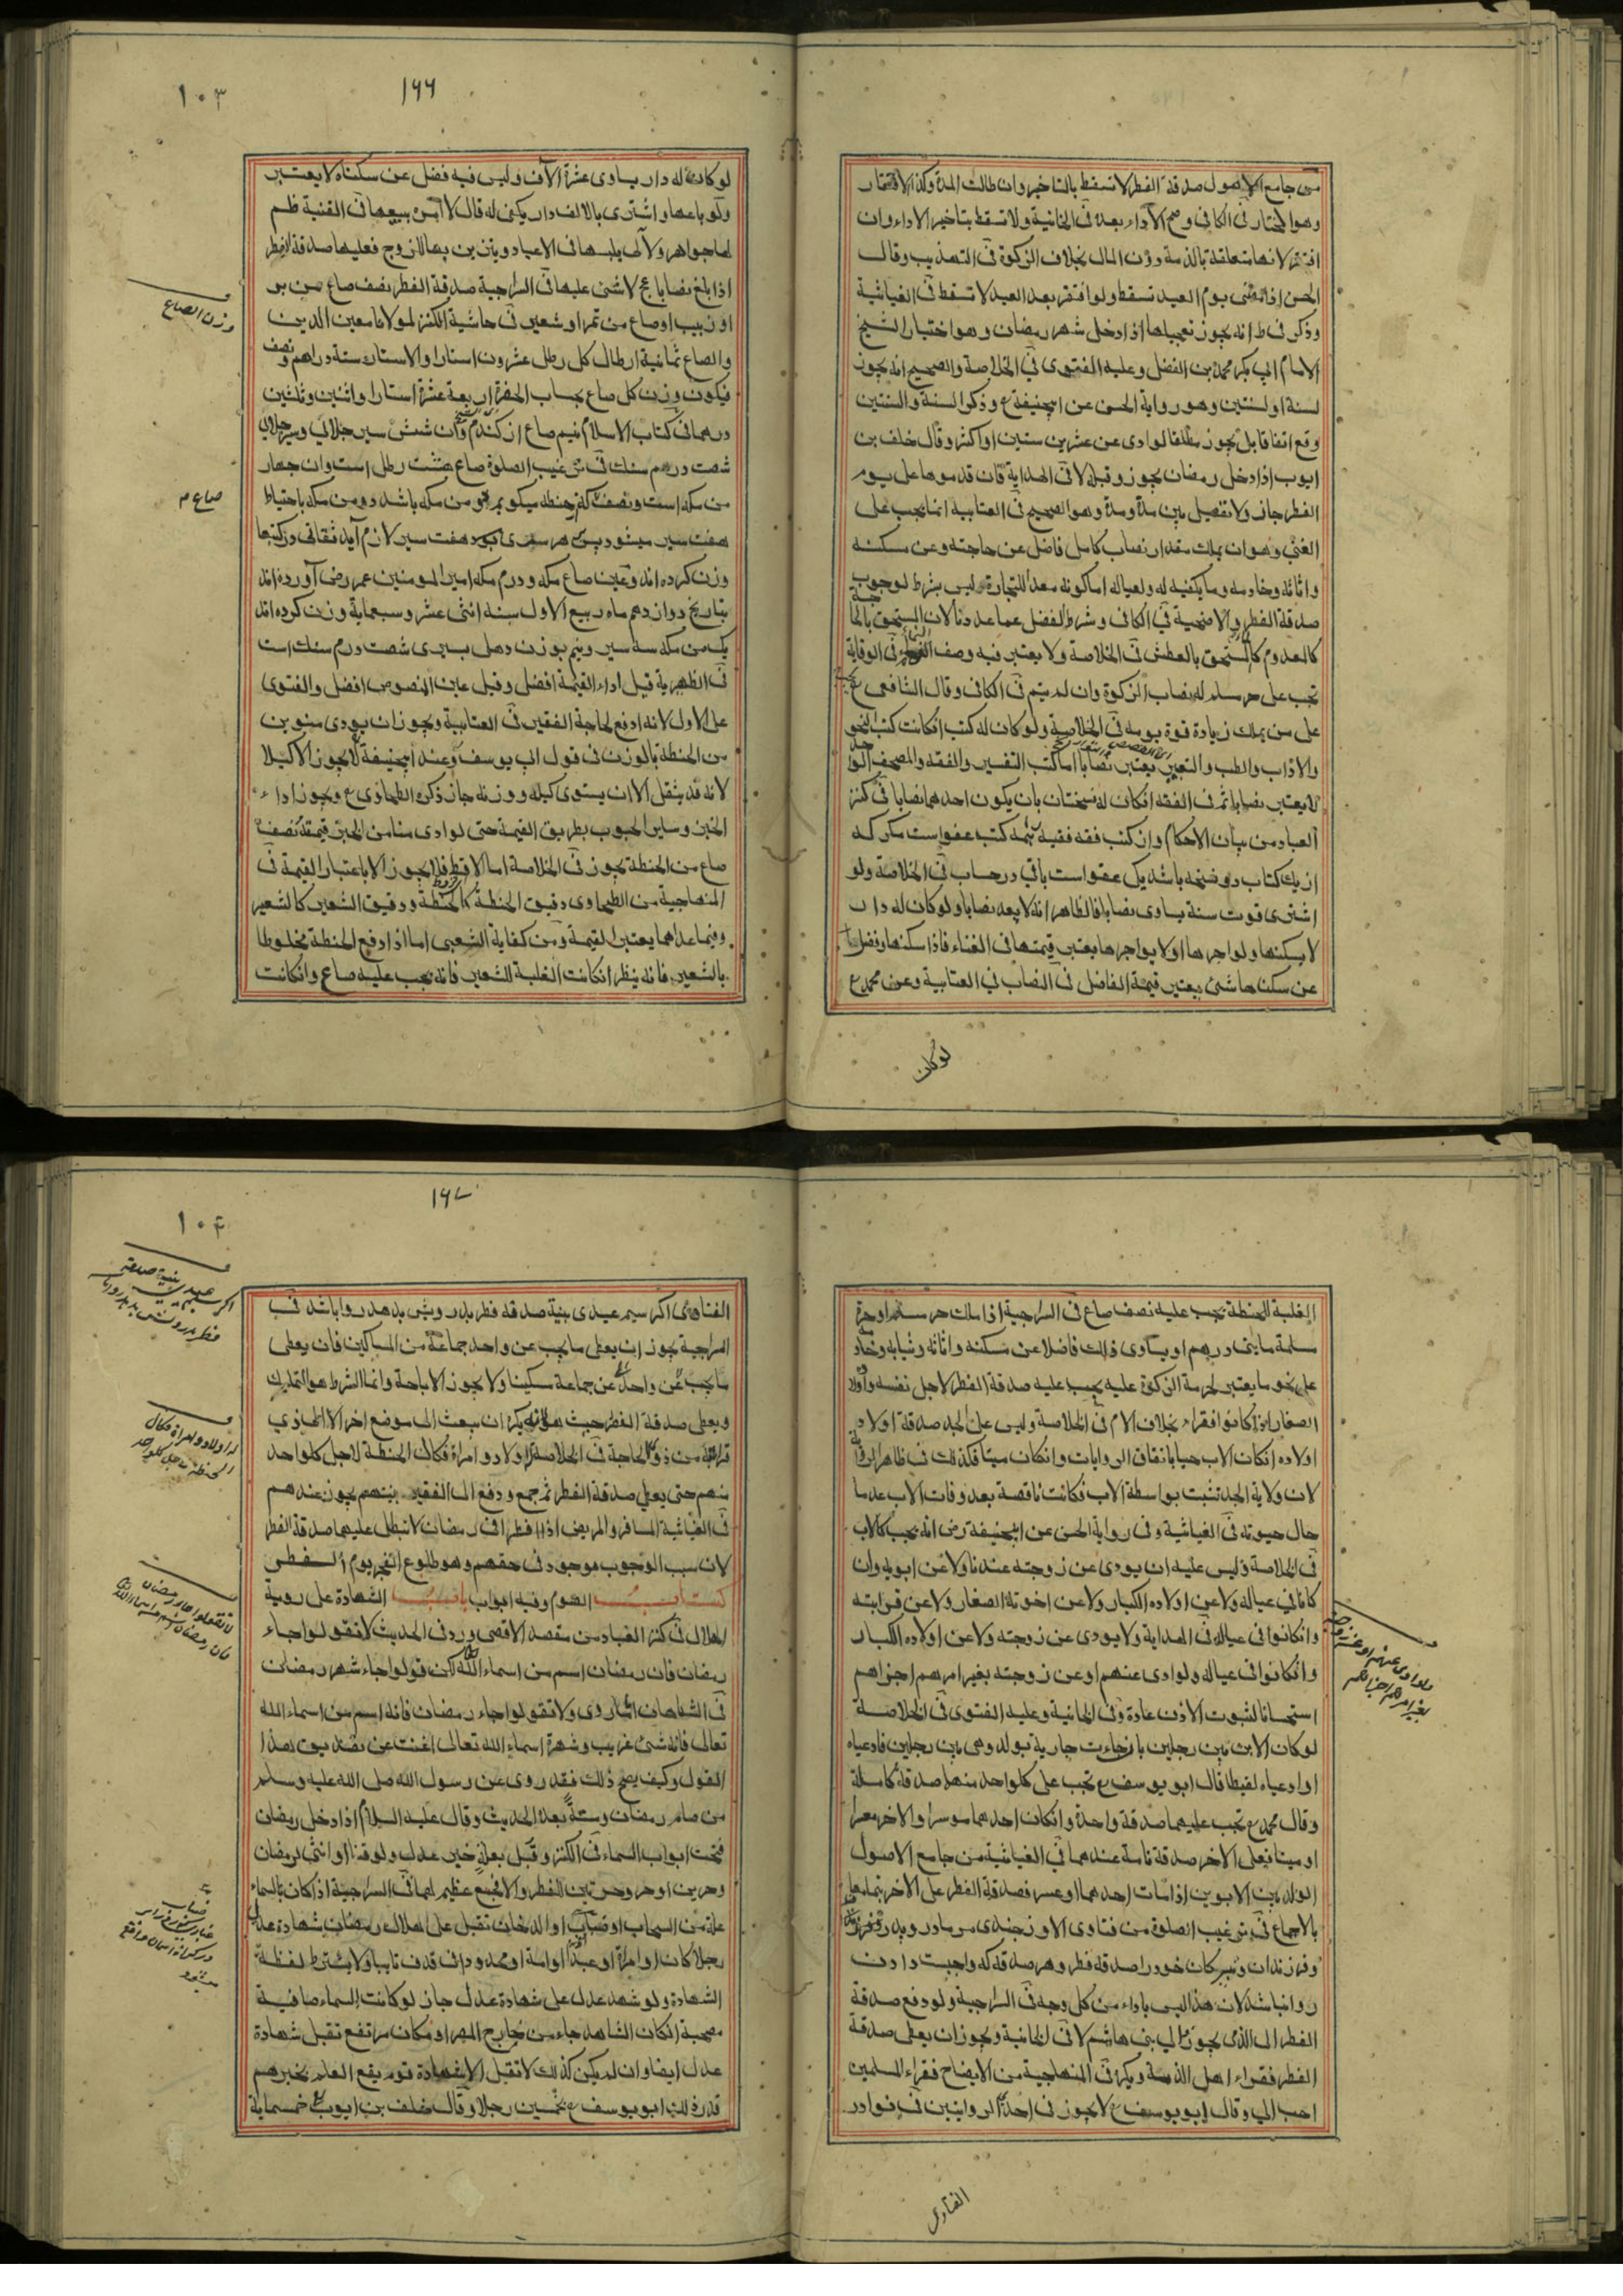 من جامع الاصول صدقة الفطر لا تسقط بالتاخير وان طالت المدة وكذا الافتقار
وهو المختار فى الكافى وصح الاداء بعده فى الخانية ولا تسقط بتاخير الاداء وان
افتقر لانها متعلقة بالذمة دون المال بخلاف الزكوة فى التهذيب وقال
الحسن اذا مضى يوم العيد تسقط ولو افتقر بعد العيد لا تسقط فى الغياثية
وذكر فى ط انه يجوز تعجيلها اذا دخل شهر رمضان وهو اختيار الشيخ
الامام ابى بكر محمد بن الفضل وعليه الفتوى فى الخلاصة والصحيح انه يجوز
لسنة او لسنتين وهو رواية الحسن عن ابيحنيفة ع وذكر السنة والسنتين
وقع اتفاقا بل يجوز مطلقا لو ادى عن عشرين سنين او اكثر وقال خلف بن
ايوب اذا دخل رمضان يجوز وقبله لا فى الهداية فان قدموها على يوم
الفطر جاز ولا تفصيل بين مدة ومدة وهو الصحيح فى العتابية انما يجب على
الغنى وهو ان يملك مقدار نصاب كامل فاضل عن حاجته وعن مسكنه
واثاثه وخادمه وما يكفيه له ولعياله اما كونه معدا للتجارة ليس بشرط لوجوب
صدقة الفطر والاضحية فى الكافى وشرط الفضل عما عددنا لان المستحق بالحاجة
كالمعدوم كالمستحق بالعطش فى الخلاصة ولا يعتبر فيه وصف النماء فى الوقاية
تجب على حر مسلم له نصاب الزكوة وان لم ينم فى الكافى وقال الشافعى ع تجب
على من يملك زيادة قوة يومه فى الخلاصة ولو كان له كتب انكانت كتب النحو
والاداب والطب والتعبير يعتبر نصابا اما كتب التفسير والفقه والمصحف الواحد
لا يعتبر نصابا ثم فى الفقه انكان له نسختان بان يكون احدهما نصابا فى كنز
العباد من بيان الاحكام وان كتب فقه فقيه همه كتب عفو است مكر كه
از يك كتاب دو نسخه باشد يكى عفو است باقى در حساب فى الخلاصة ولو
اشترى قوت سنة يساوى نصابا فالظاهر انه لا يعد نصابا ولو كان له دار
لا يسكنها ولو اجرها او لا يواجرها يعتبر قيمتها فى الغناء فاذا سكنها وفضل
عن سكناها شئ يعتبر قيمة الفاضل فى النصاب فى العتابية وعن محمد ع
لو كان
١٦٦
١٠٣
لو كانت له دار يساوى عشرة الاف وليس فيه فضل عن سكناه لا يعتبر
ولو باعها واشترى بالالف دار يكفى له قال لا آمره ببيعها فى القنية
لها جواهر ولآلى يلبسها فى الاعياد ويتزين بها للزوج فعليها صدقة الفطر
اذا بلغ نصابا لا شئ عليها فى السراجية صدقة الفطر نصف صاع من بر
او زبيب او صاع من تمر او شعير فى حاشية الكنز لمولانا معين الدين
والصاع ثمانية ارطال كل رطل عشرون استارا والاستار ستة دراهم ونصف
فيكون وزن كل صاع بحساب اربعة عشرة استارا واثنين وثلثين
درهما فى كتاب الاسلام نيم صاع از كندم وآن شش سير جلالى
شصت درهم سنك فى ترغيب الصلوة صاع هشت رطل است وان جهار
من مكه است ونصف كه از حنطه ميكويم دو من مكه باشد دو من مكه باحتياط
هفت سير ميشود هفت سير لازم آيد
وزن كرده اند وعين صاع مكه ودرم مكه امير المومنين عمر رضى آورده اند
بتاريخ دوازدهم ماه ربيع الاول سنة اثنى عشر وسبعماية وزن كرده اند
يك من مكه سه سير ونيم بوزن دهلى بسيرى شصت درم سنك است
فى الظهيرية قيل اداء القيمة افضل وقيل عين المنصوص افضل والفتوى
على الاول لانه ادفع لحاجة الفقير فى العتابية ويجوز ان يودى منوين
من الحنطة بالوزن فى قول ابى يوسف وعند ابيحنيفة لا يجوز الا كيلا
لانه قد يثقل الا ان يستوى كيله ووزنه جاز ذكره الطحاوى ع ويجوز اداء
الخبز وساير الحبوب بطريق القيمة حتى لو ادى منا من الخبز قيمته نصف
صاع من الحنطة يجوز فى الخلاصة اما الاقط فلا يجوز الا باعتبار القيمة فى
المنهاجية من الطحاوى دقيق الحنطة كالحنطة ودقيق الشعير كالشعير
وفيما عداهما يعتبر القيمة ومن كفاية الشعبى اما اذا دفع الحنطة مخلوطا
بالشعير فانه ينظر انكانت الغلبة للشعير فانه يجب عليه صاع وانكانت
وزن الصاع
صاع م
الغلبة للحنطة يجب عليه نصف صاع فى السراجية اذا ملك حر مسلم او حرة
مسلمة مايتى درهم او يساوى ذلك فاضلا عن مسكنه واثاثه وثيابه وخادمه
على نحو ما يعتبر لحرمة الزكوة عليه يجب عليه صدقة الفطر لاجل نفسه واولاده
الصغار اذا كانوا فقراء بخلاف الام فى الخلاصة وليس على الجد صدقة اولاد
اولاده انكان الاب حيا باتفاق الروايات وانكان ميتا فكذلك فى ظاهر الرواية
لان ولاية الجد تثبت بواسطة الاب فكانت ناقصة بعد وفات الاب عدما
حال حيوته فى الغياثية وفى رواية الحسن عن ابيحنيفة رض انه يجب كالاب
فى الخلاصة وليس عليه ان يودى عن زوجته عندنا ولا عن ابويه وان
كانا فى عياله ولا عن اولاده الكبار ولا عن اخوته الصغار ولا عن قرابته
وانكانوا فى عياله فى الهداية ولا يودى عن زوجته ولا عن اولاده الكبار
وانكانوا فى عياله ولو ادى عنهم او عن زوجته بغير امرهم اجزاهم
استحسانا لثبوت الاذن عادة وفى الخانية وعليه الفتوى فى الخلاصة
لو كان الابن بين رجلين بان جاءت جارية بولد وهى بين رجلين فادعياه
او ادعياه لقيطا قال ابو يوسف ع تجب على كلواحد منهما صدقة كاملة
وقال محمد ع تجب عليهما صدقة واحدة وانكان احدهما موسرا والاخر معسرا
او ميتا فعلى الاخر صدقة تامة عندهما فى الغياثية من جامع الاصول
الولد بين الابوين اذا مات احدهما او عسر فصدقة الفطر على الاخر بتمامها
بالاجماع فى ترغيب الصلوة من فتاوى الاوزجندى مر مادر وپدر
وفرزندان ونبيركان خود را صدقه فطر وهر صدقه كه واجبست دادن
روا نباشد لان هذا ليس باداء من كل وجه فى السراجية ولو دفع صدقة
الفطر الى الذمى يجوز والى بنى هاشم لا فى الخانية ويجوز ان يعطى صدقة
الفطر فقراء اهل الذمة ويكره فى المنهاجية من الايضاح فقراء المسلمين
احب الى وقال ابو يوسف ع لا يجوز فى احدى الروايتين فى نوادر
ولو ادى عنهم او عن زوجته
بغير امرهم اجزاهم
الفتاوى
١٦٧
١٠٤
الفتاوى اكر سيم عيدى بنية صدقه فطر بدرويش بدهد روا باشد فى
السراجية يجوز ان يعطى ما يجب عن واحد جماعة من المساكين فان يعطى
ما يجب عن واحد عن جماعة مسكينا ولا يجوز الاباحة وانما الشرط هو التمليك
ويعطى صدقة الفطر حيث هو ويكره ان يبعث الى موضع اخر الا الى ذوى
قرابته من ذوى الحاجة فى الخلاصة له اولاد وامراة فكال الحنطة لاجل كلواحد
منهم حتى يعطى صدقة الفطر ثم جمع ودفع الى الفقير بنيتهم يجوز عندهم
فى الغياثية المسافر والمريض اذا افطرا فى رمضان لا تبطل عليهما صدقة الفطر
لان سبب الوجوب موجود فى حقهم وهو طلوع الفجر يوم الفطر
كتاب الصوم وفيه ابواب باب الشهادة على روية
الهلال فى كنز العباد من مقصد الاقصى ورد فى الحديث لا تقولوا جاء
رمضان فان رمضان اسم من اسماء الله لكن قولوا جاء شهر رمضان
فى الشاهان المروى ولا تقولوا جاء رمضان فانه اسم من اسماء الله
تعالى فانه شئ غريب وشهرة اسماء الله تعالى اغنت عن تصديق هذا
القول وكيف يصح ذلك فقد روى عن رسول الله صلى الله عليه وسلم
من صام رمضان وستة بعده الحديث وقال عليه السلام اذا دخل رمضان
فتحت ابواب السماء فى الكنز وقبل بعلة خبر عدل ولو قنا او انثى لرمضان
وحرين او حر وحرتين للفطر والا فجمع عظيم لهما فى السراجية اذا كان بالسماء
علة من السحاب او ضباب او الدخان تقبل على هلال رمضان شهادة عدل
رجلا كان او امراة او عبدا او امة او محدود فى قذف تايبا ولا يشترط لفظة
الشهادة ولو شهد عدل على شهادة عدل جاز لو كانت السماء صافية
مصحية انكان الشاهد جاء من خارج المصر او مكان مرتفع تقبل شهادة
عدل ايضا وان لم يكن كذلك لا تقبل الا شهادة قوم يقع العلم بخبرهم
قدر ذلك ابو يوسف ع بخمسين رجلا وقال خلف بن ايوب ع خمسماية
اكر سيم عيدى بنية صدقه
فطر بدرويش بدهد روا باشد
له اولاد وامراة فكال
الحنطة لاجل كلواحد
لا تقولوا جاء رمضان
فان رمضان اسم من اسماء الله